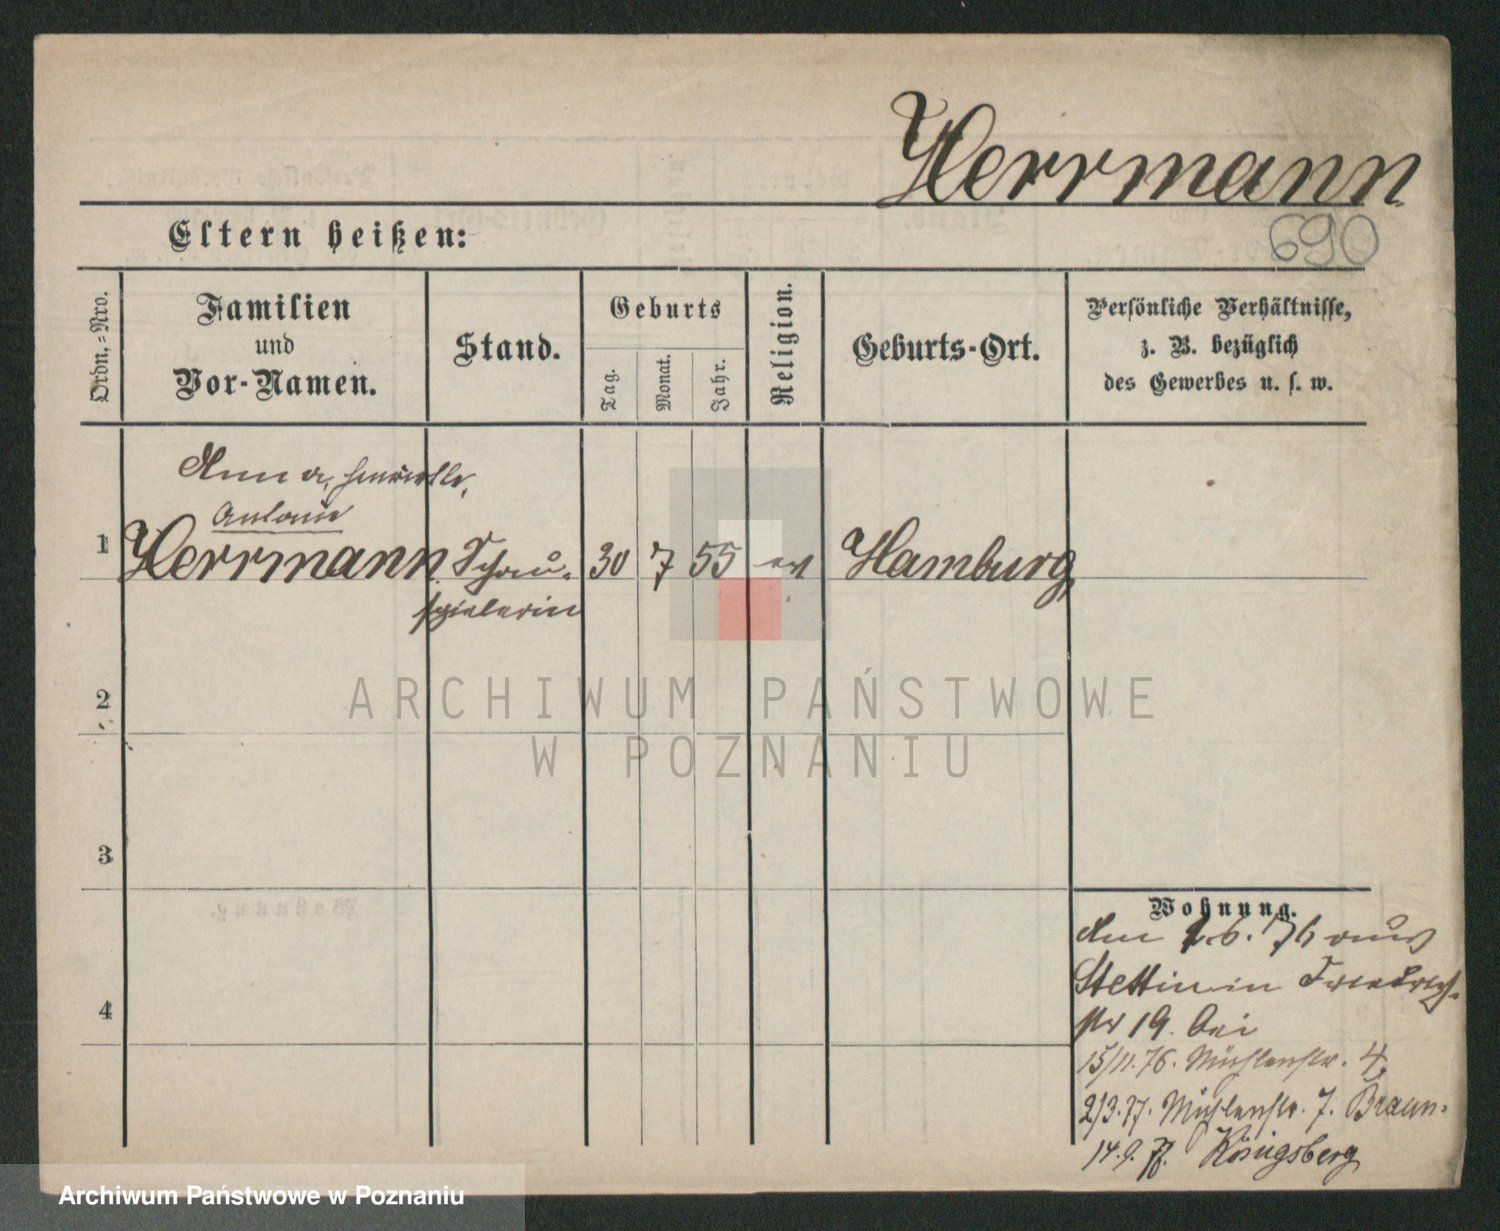 Herrmann
690
Eltern heißen:
Ordn.-Nro.
Familien
und
Vor-Namen.
Stand.
Geburts
Tag.
Monat.
Jahr.
Religion.
Geburts-Ort.
Persönliche Verhältnisse,
z. B. bezüglich
des Gewerbes u. s. w.
Anna, Henriette,
Antonie
1 Herrmann Schau- 30 7 55 ev Hamburg
spielerin
2
3
4
Wohnung.
den 1.6.76 aus
Stettin in Friedrich-
str 19. bei
15/11.76. Mühlenstr. 4.
2/3.77. Mühlenstr. 7. Braun.
14.9.77. Königsberg
ARCHIWUM PAŃSTWOWE
W POZNANIU
Archiwum Państwowe w Poznaniu